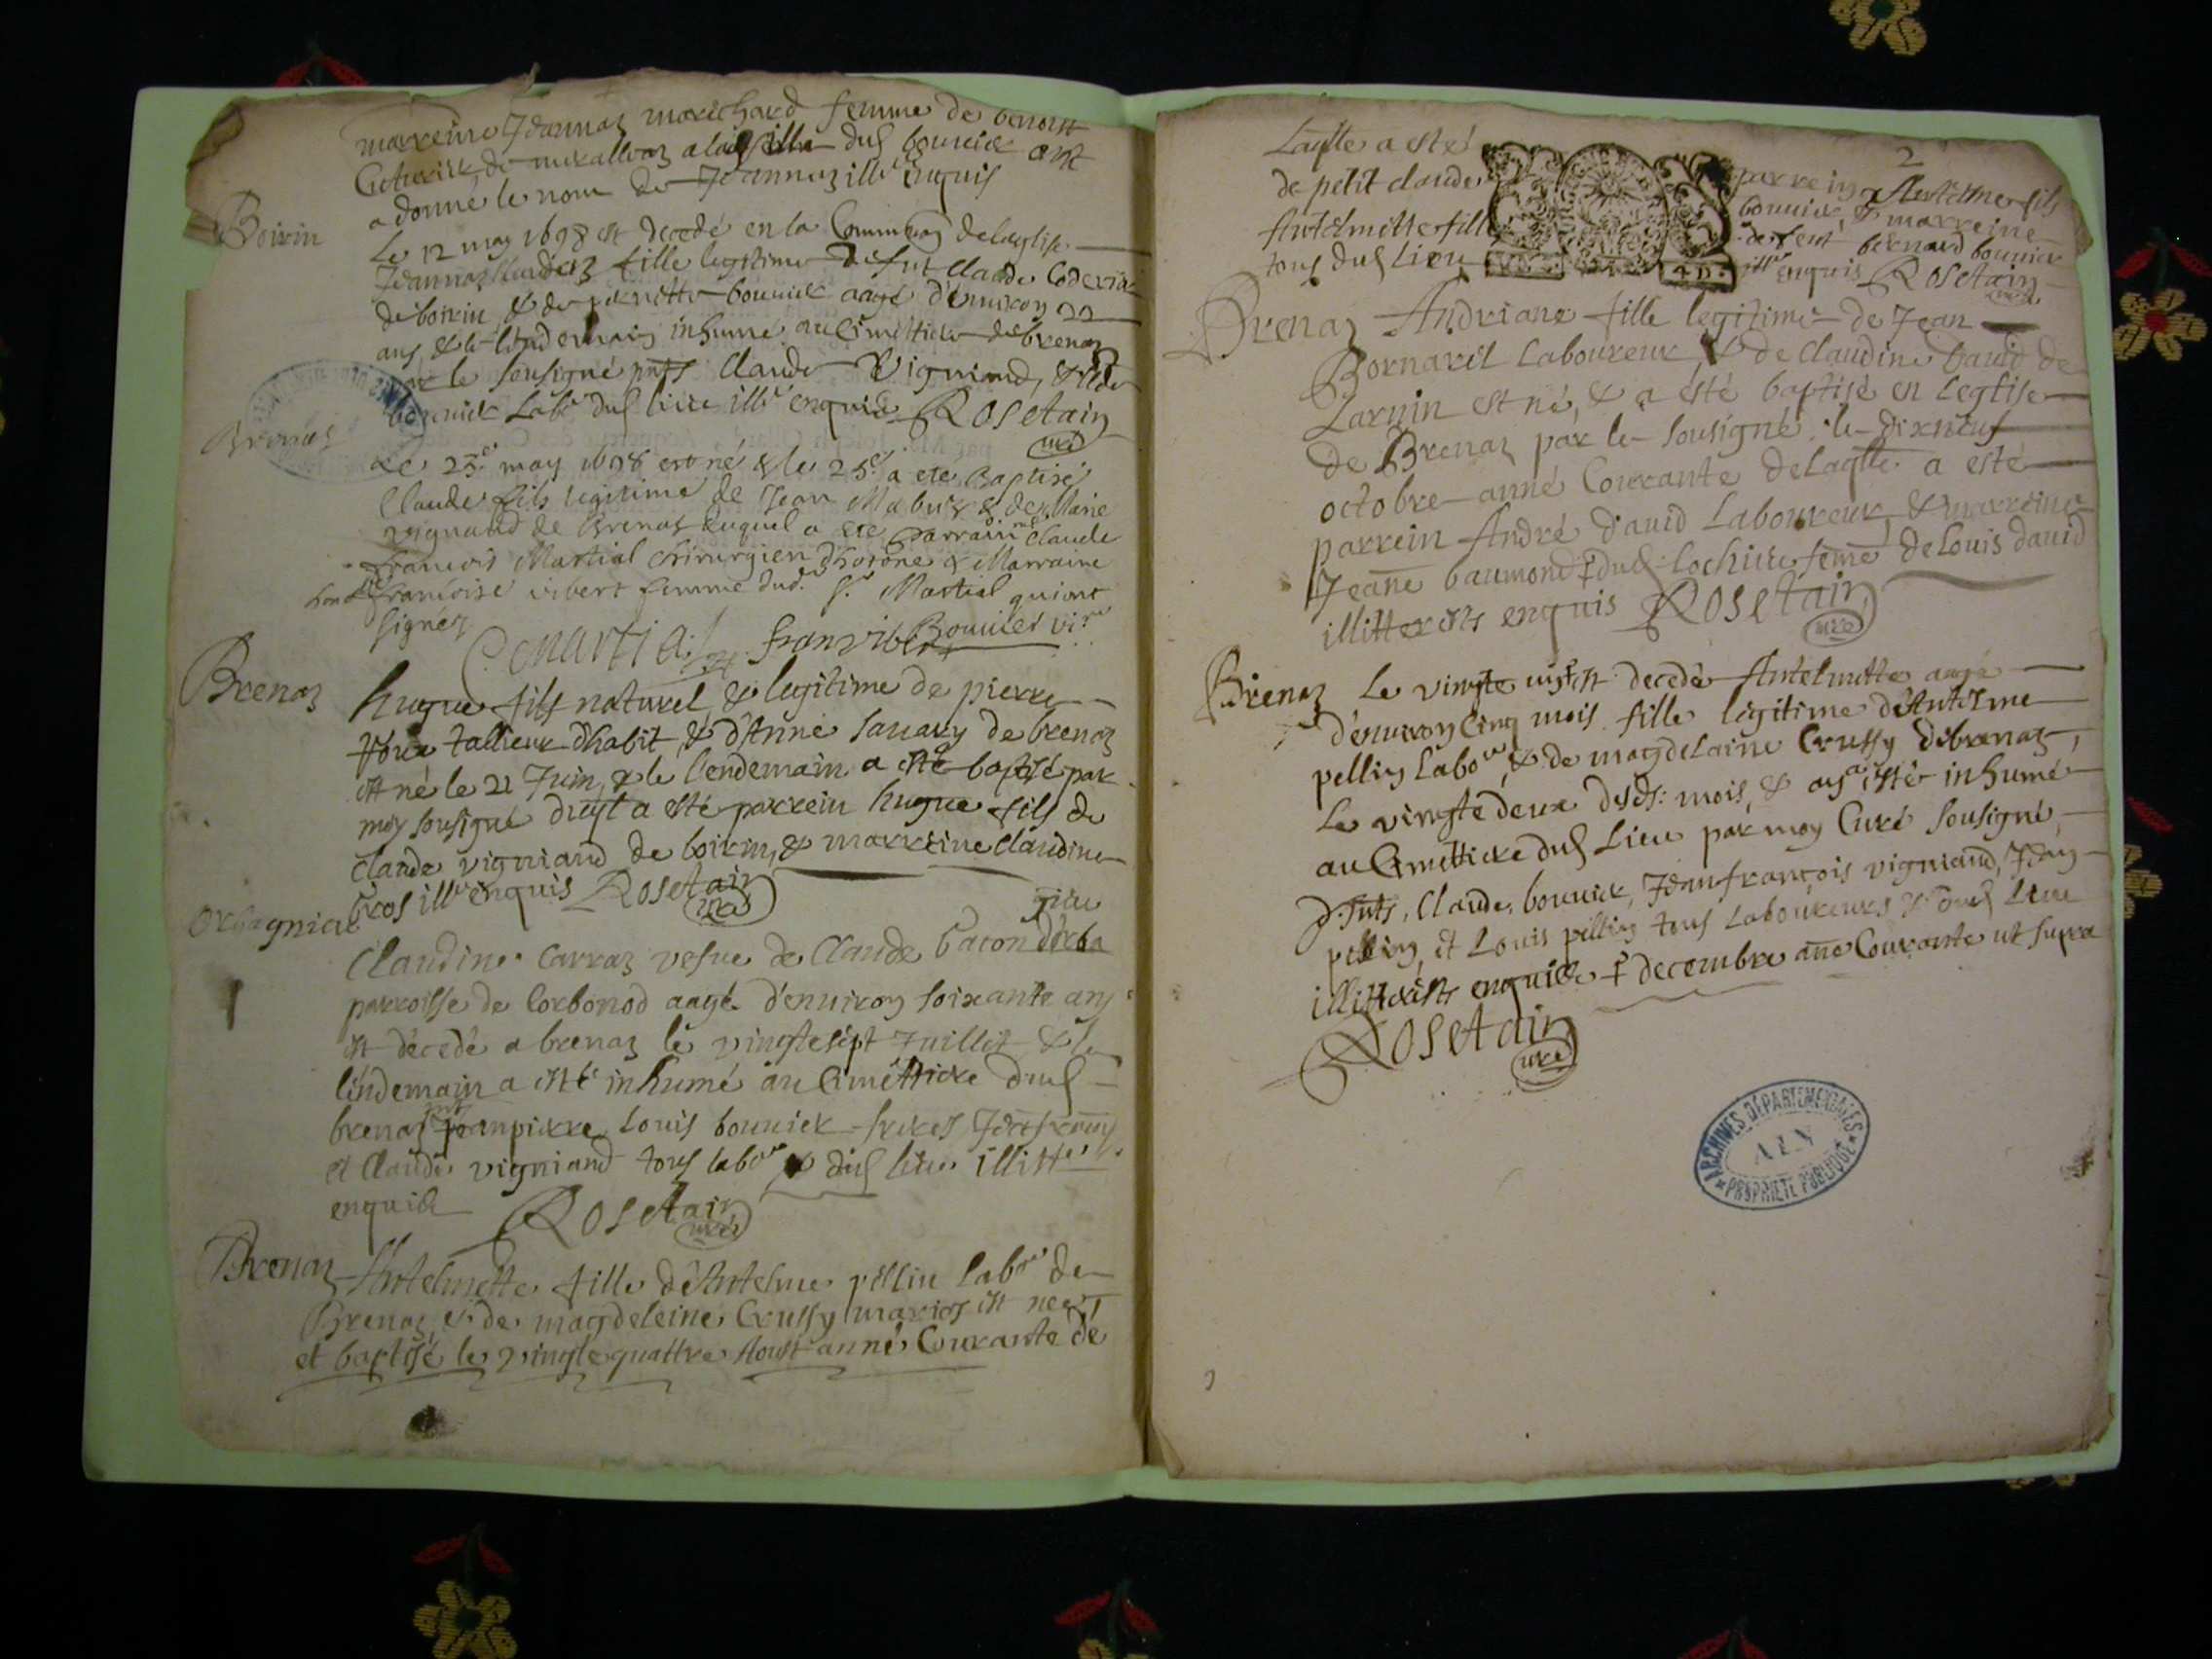 marreine Jeannaz marichard femme de benoist
a donné le nom de Jeannaz illré enquis
Boirin
Le 12 may 1698 est decedé en la Commion de leglise
Jeannaz fille legitime de fut Claude
de boirin, & de pernette bouuier aagé d'enuiron 22
ans, & le lendemain inhumé au Cimettiere de brenaz
par le sousigné pnts Claude Vigniand, &
bouuier Labr dud lieu illré enquis Rosetain
curé
Brenaz
Le 23e may 1698 est né & le 25e a ete Baptisé
Claude fils legitime de Jean & de Marie
vignand de Brenas duquel a ete parrain mre Claude
francois Martial chirurgien d'hotone & Marraine
françoise vibert femme dud. Sr. Martial qui ont
signéz
C. Martial fran vibert Bouuier vire
Brenaz
hugue fils naturel & legitime de pierre
tallieur d'habit, & d'Anne Sauary de brenaz
est né le 21 Juin, & le lendemain a esté baptisé par
moy sousigné duql a esté parrein hugue fils de
Claude vigniand de boirin, & marreine Claudine
gros illré enquis Rosetain
curé
Orbagnieu
Claudine Carraz vesue de Claude bacon d'orba
gnieu
parroisse de Corbonod aagé d'enuiron soixante ans
est décedé a brenaz le vingtesept Juillet & le
lendemain a esté inhumé au Cimettiere dud
brenaz pnts Jeanpierre, Louis bouuier freres Jean françois
et Claude vigniand tous labrs & dud lieu illittes
enquis Rosetain
curé
Brenaz
Antelmette fille d'Antelme pellin Labr de
Brenaz, & de magdeleine Crussy mariés est née
et baptisé le vingtequattre Aoust anné Courante de
2
Laqlle a esté parrein Antelme fils
de petit claude bouuier & marreine
Antelmette fille de feut bernard bouuier
tous dud Lieu illré enquis Rosetain
curé
Brenaz
Andriane fille legitime de Jean
Bornarel Laboureur, & de Claudine dauid de
Larnin est né, & a esté baptisé en leglise
de Brenaz par le sousigné le dixneuf
octobre anné Courante de laqlle a esté
parrein André dauid Laboureur, & marreine
Jeane baumond dud Lochieu feme de Louis dauid
illitterés enquis Rosetain
curé
Brenaz
Le vingte est decedé Antelmette aagé
d'enuiron Cinq mois fille legitime d'Antelme
pellin Labor, & de magdelaine Crussy de brenaz,
Le vingtedeux desds: mois, & an a esté inhumé
au Cimettiere dud Lieu par moy Curé sousigné,
pnts, Claude bouuier, Jean françois vigniand, Jean
pellin, et Louis pellin tous Laboureurs & dud Lieu
illitterés enquis decembre ane Courante ut supra
Rosetain
curé
ARCHIVES DÉPARTEMENTALES
AIN
PROPRIETE PUBLIQUE